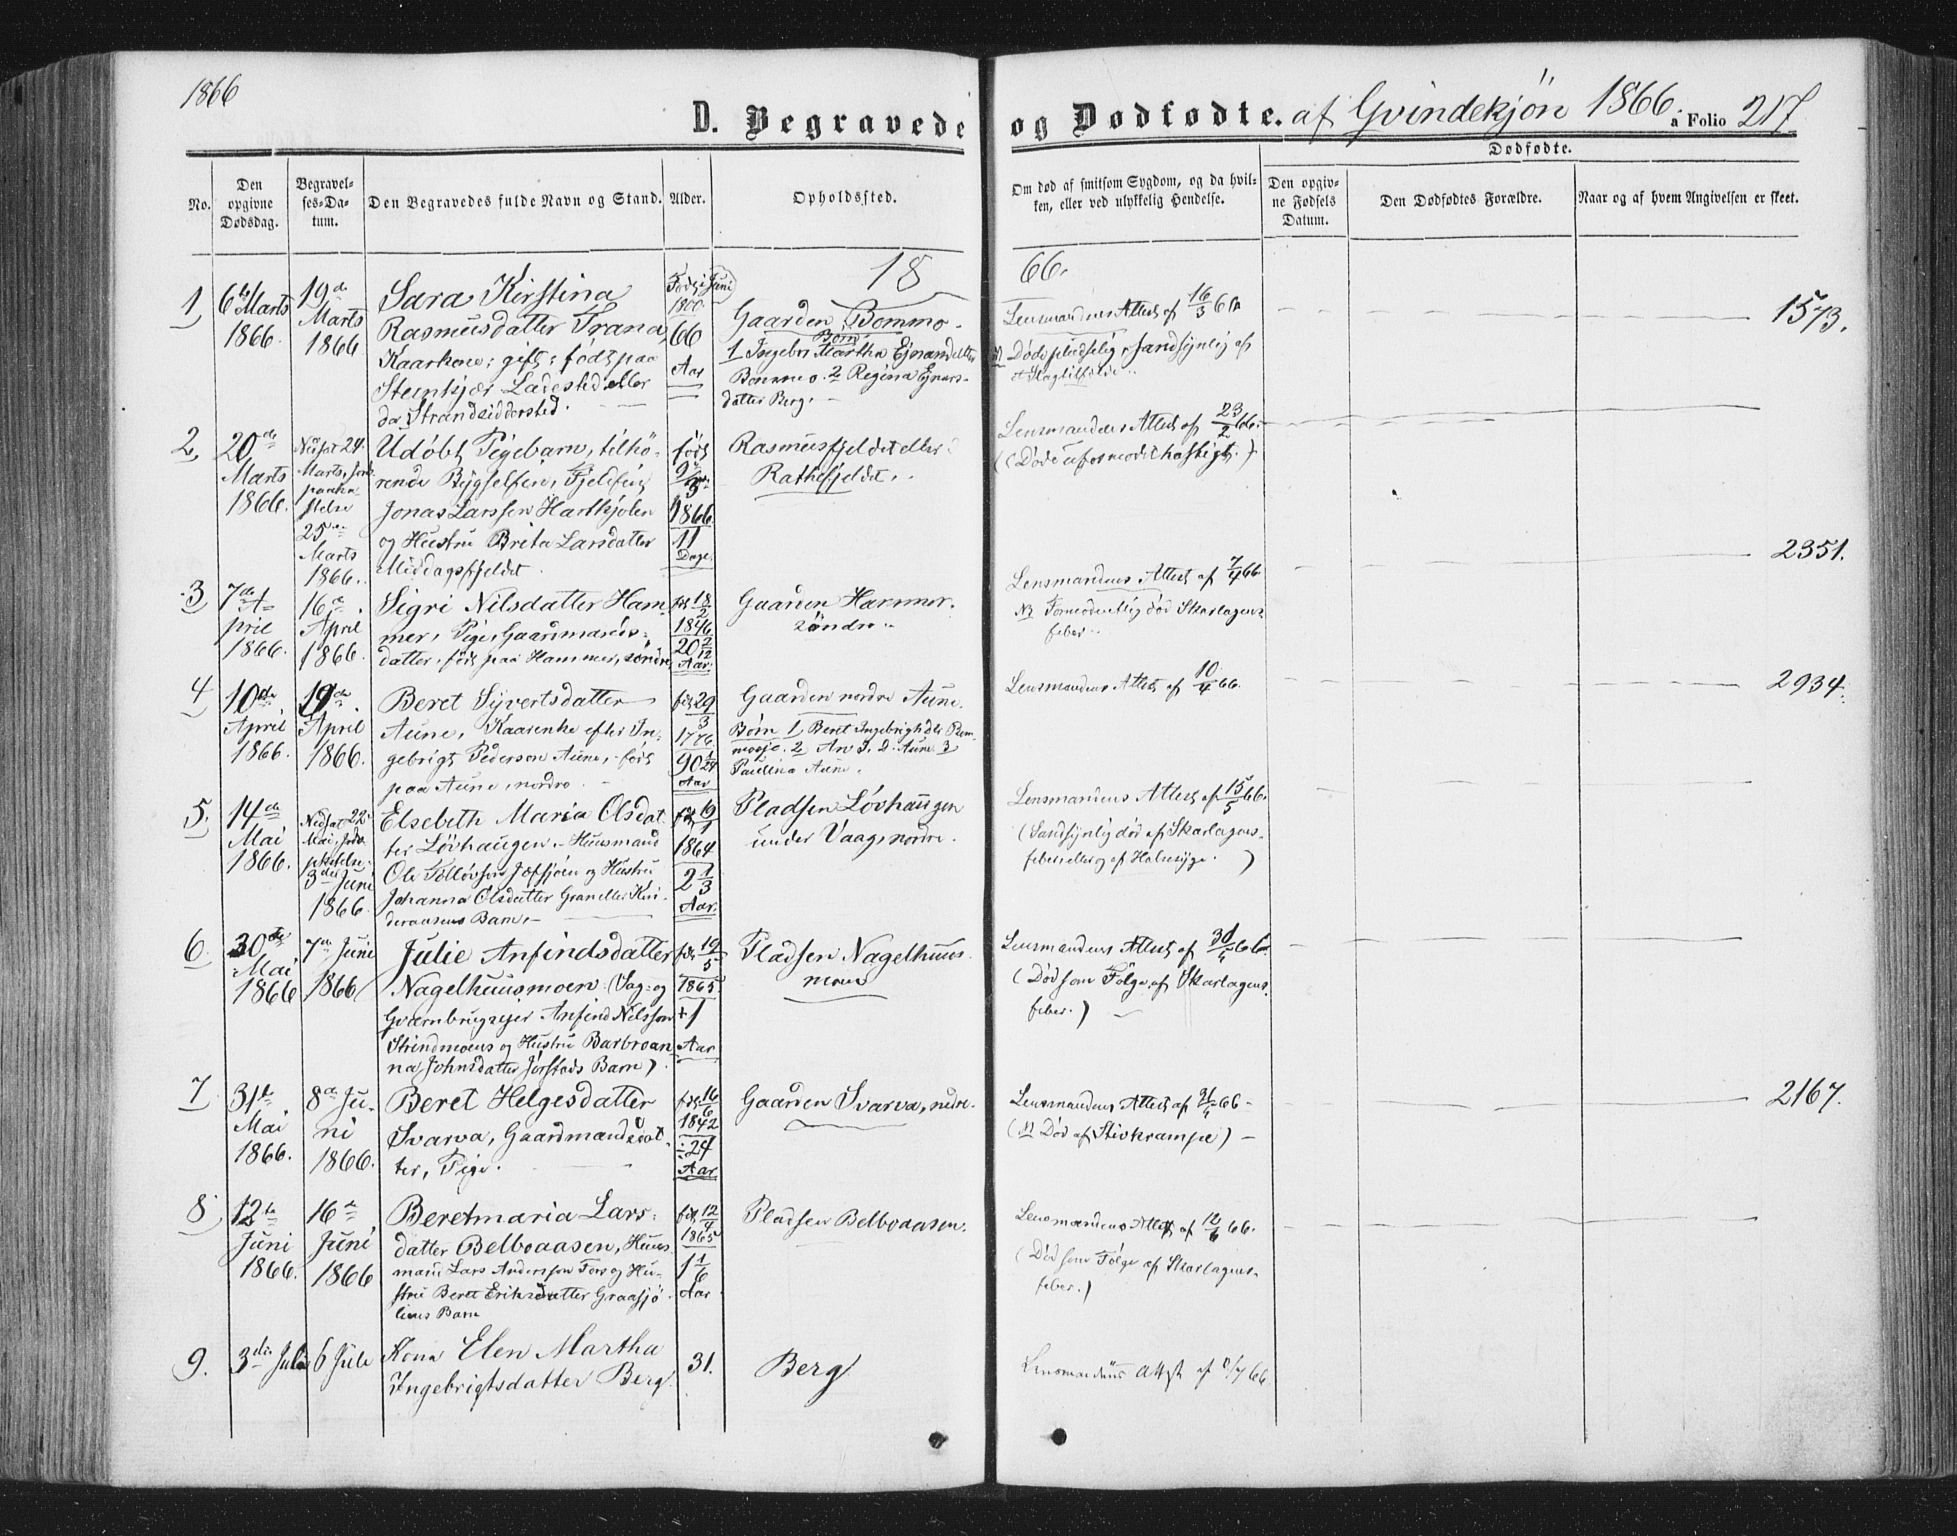 1866
D. Begravede og Dødfødte. af Qvindekjön 1866. a Folio 217
Dødfødte.
No.
Den opgivne Dødsdag.
Begravelses-Datum.
Den Begravedes fulde Navn og Stand.
Alder.
Opholdssted.
Om død af smitsom Sygdom, og da hvilken, eller ved ulykkelig Hendelse.
Den opgivne Fødsels Datum.
Den Dødfødtes Forældre.
Naar og af hvem Angivelsen er skeet.
18 66.
1
6te Marts
1866.
19de
Marts
1866
Sara Kirstina
Rasmusdatter Trana,
Kaarkone; gift; født paa
Steinkjær Ladested eller
der Strandsiddersted.
Født i Juni
1800
66
Aar
Gaarden Bommo.
Børn
1 Ingebr. Martha Ejnarsdatter
Bommo. 2 Regina Ejnars-
datter Berg.
Lensmandens Attest af 16/3 66
Døde pludselig, sandsynlig af
et Slagtilfælde.
1573.
2
20de
Marts
1866.
Nedsat 24
Marts, Jord-
paaka-
stelse
25de
Marts
1866.
Udøbt Pigebarn, tilhö-
rende Bygselfin, Fjeldfin
Jonas Larssen Hartkjølen
og Hustru Brita Larsdatter
Middagsfjeldet
født
9/3
1866
11
Dage
Rasmusfjeldet eller
Rathefjeldet.
Lensmandens Attest af 23/2 66.
(Døde uformodet hastigt.)
3
7de A-
pril
1866.
16de
April
1866.
Sigri Nilsdatter Ham-
mer, Pige, Gaardmands-
datter, født paa Hammer, söndre
fdt 18/2
1846
20 2/12
Aar.
Gaarden Hammer
söndre
Lensmandens Attest af 7/4 66
NB Formodentlig død Skarlagens-
feber.
2351.
4
10de
April
1866.
19de
April
1866.
Beret Syvertsdatter
Aune, Kaarenke efter In-
gebrigt Pederson Aune, født
paa Aune, nordre
fdt 29/3
1776
90 1/24
Aar
Gaarden nordre Aune.
Børn 1 Beret Ingebrigtsdtr Rem-
mosje. 2 An I. D. Aune 3
Paulina Aune.
Lensmandens Attest af 10/4 66.
2934.
5
14de
Mai
1866.
Nedsat 22
Mai, Jord-
pkstelse
3die Juni
1866
Elsebeth Maria Olsdat-
ter Løvhaugen. Huusmand
Ole Tollovson Jofsjøen og Hustru
Johanna Olsdatter Gran eller Kin-
deraasens Barn.
fdt 19/1
1864
2 1/3
Aar.
Pladsen Lövhaugen
under Vaag, nordre.
Lensmandens Attest af 15/5 66.
(Sandsynlig død af Skarlagens-
feber eller og af Halssyge.)
6
30te
Mai
1866
7de Juni
1866
Julie Anfindsdatter
Nagelhuusmoen. (Sag- og
Qværnbrugsejer Anfind Nilsson
Strindmoens og Hustru Barbroan-
na Johnsdatter Jørstads Barn).
fdt 19/5
1865
1
Aar
Pladsen Nagelhuus-
moen
Lensmandens Attest af 30/5 66.
(Død som Følge af Skarlagens-
feber.)
7
31te
Mai
1866.
8de Ju-
ni
1866.
Beret Helgesdatter
Svarva, Gaardmandsdat-
ter, Pige.
fdt 16/6
1842
24
Aar
Gaarden Svarva, nedre.
Lensmandens Attest af 31/5 66
(NB Død af Stivkrampe)
2167.
8
12te
Juni
1866.
16de
Juni
1866
Beretmaria Lars-
datter Belboaasen, Huus-
mand Lars Andersson Fors og Hu-
stru Beret Eriksdatter Graasjö-
liens Barn
fdt 12/4
1865
1 1/6
Aar
Pladsen Belboaasen.
Lensmandens Attest af 12/6 66.
(Død som Følge af Skarlagens-
feber.)
9.
3die Juli
6 Juli
Kona Elen Martha
Ingebrigtsdatter Berg
31.
Berg
Lensmandens Attest af /7 66.